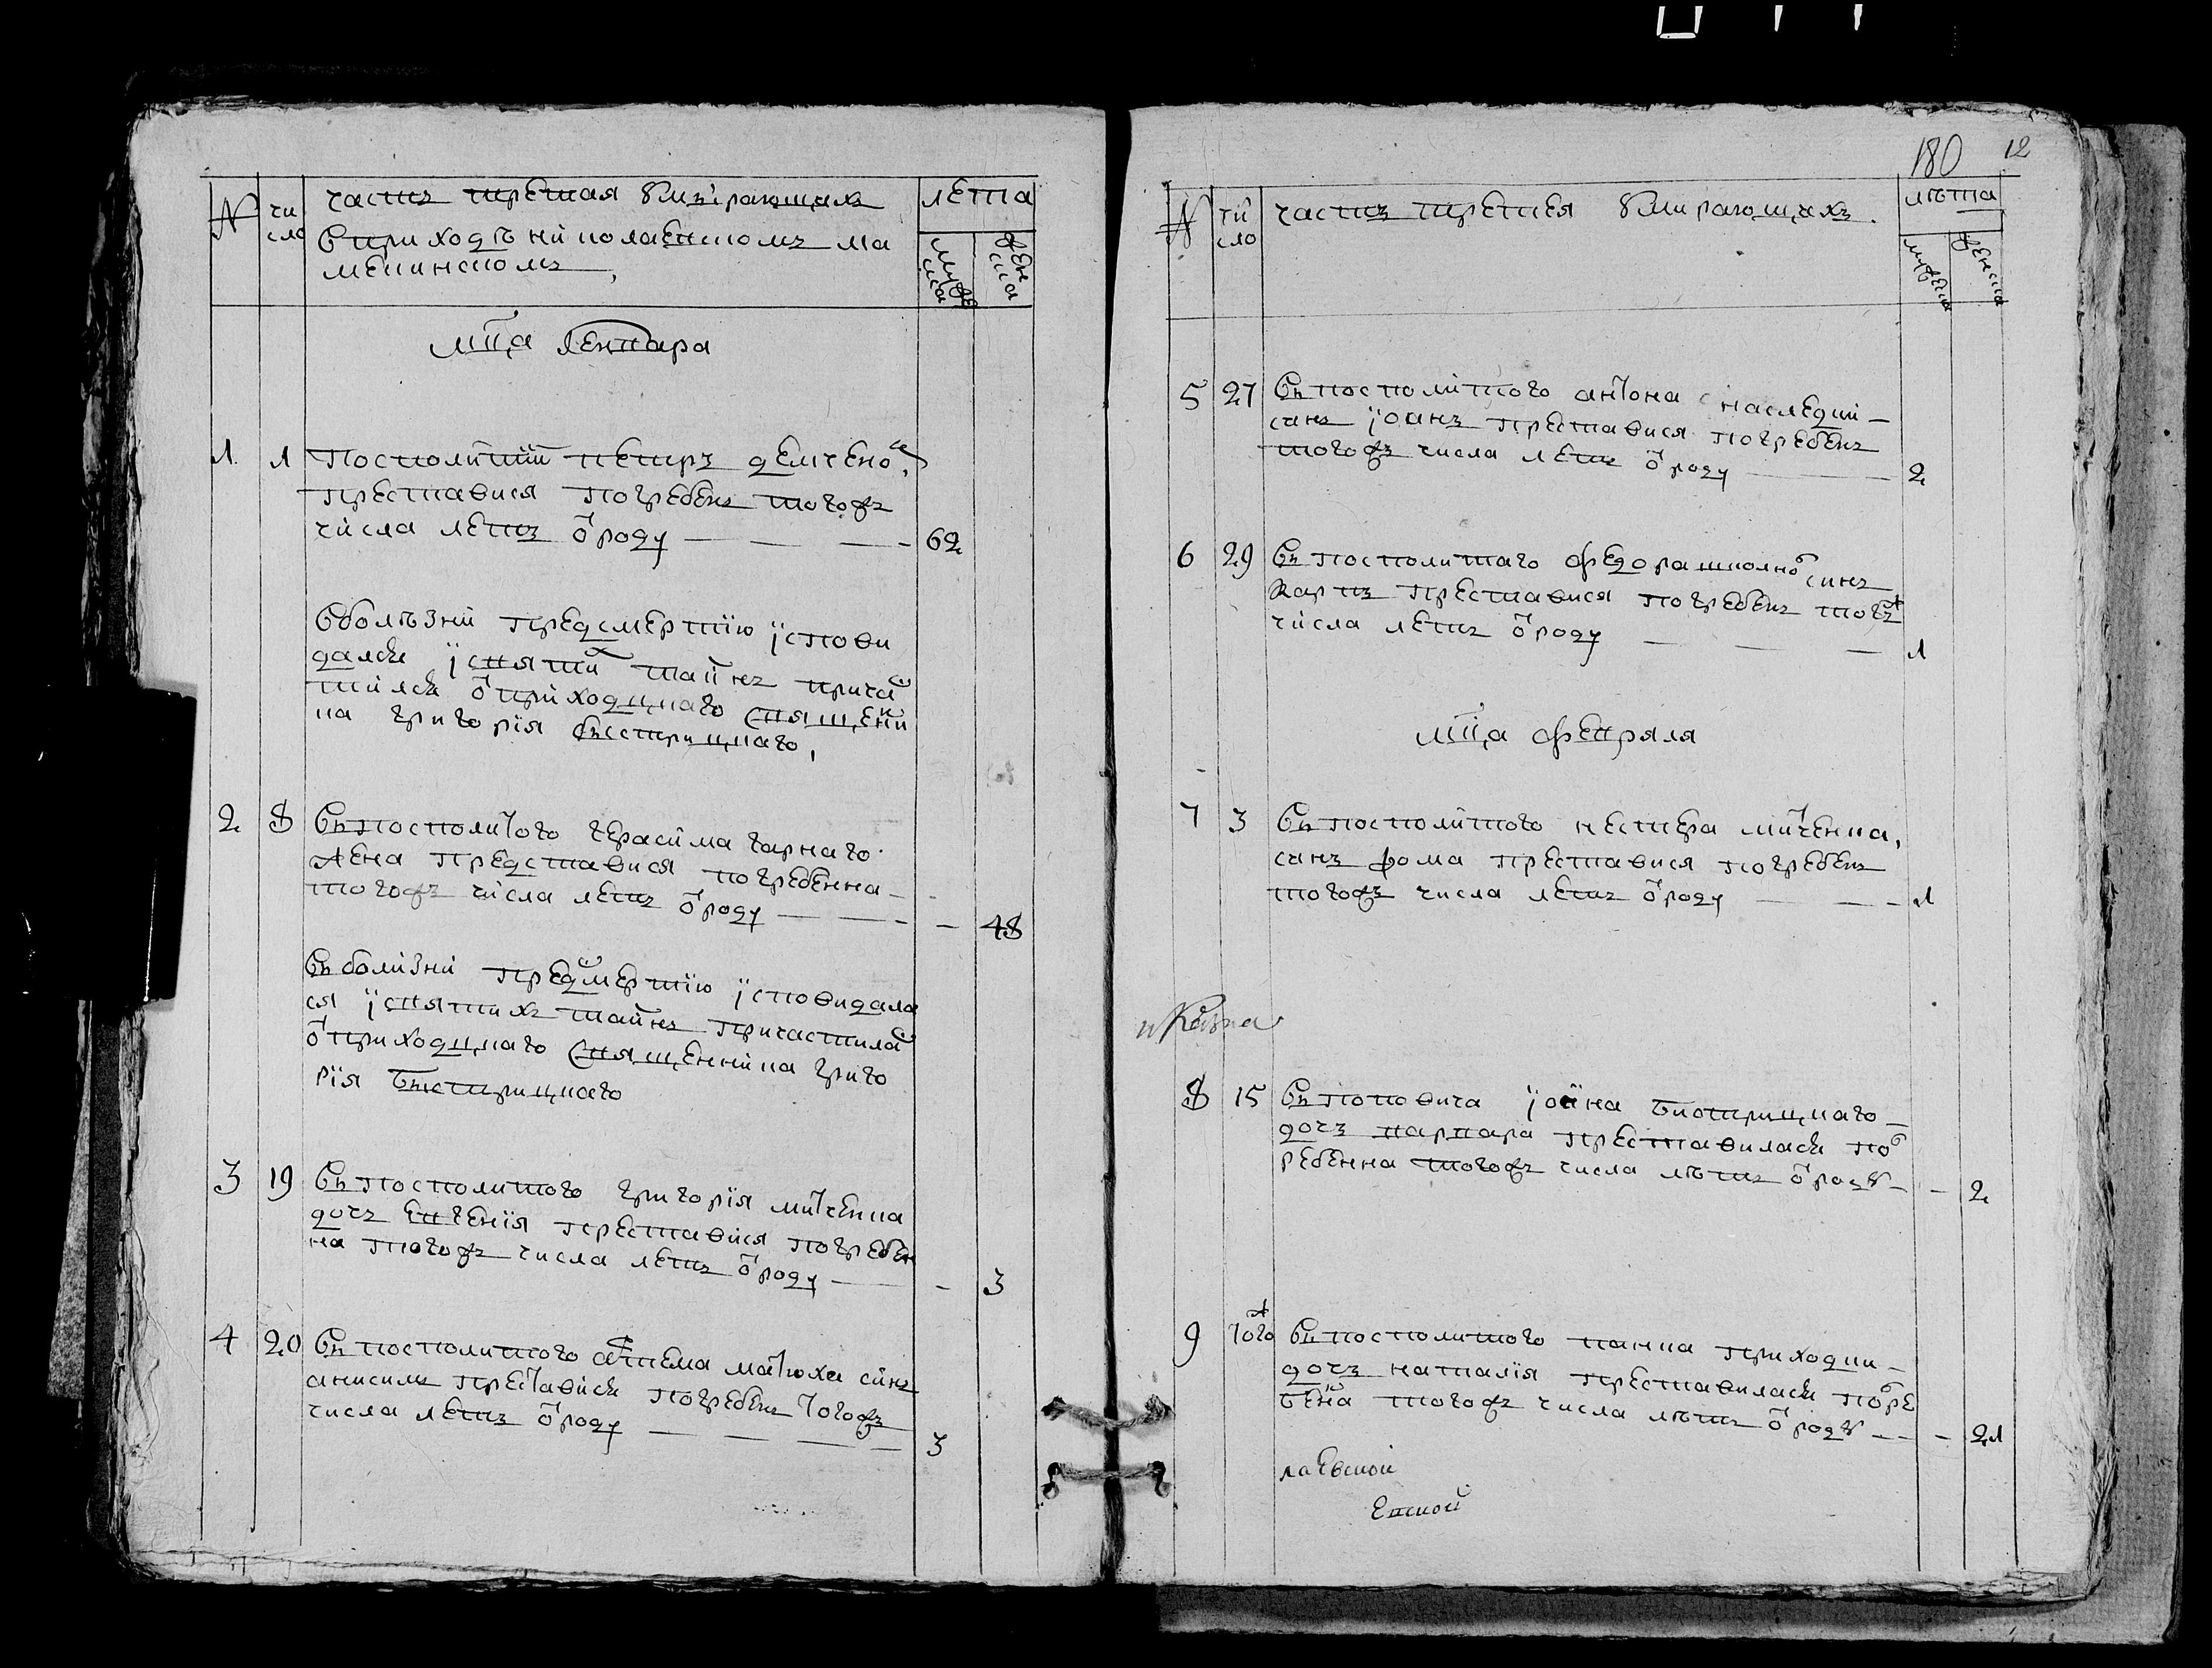 №
чи
сло
часть третая умирающихъ
в приходѣ николаевскомъ ма
мекинскомъ,
лета
мужеска
женска
мц҃а генвара
1
1
Посполитїй петръ демченко,
преставися погребенъ тогожъ
числа летъ ѿ роду
62
В болѣзни пред смертїю їспови
далься ї святи тайнъ прича
тился ѿ приходцкаго священи
ка григорїя быстрицкаго,
2
8
В посполитого герасима чарнаго
жена представися погребенна
тогожъ числа летъ ѿ роду
48
В болизни пред смертїю їсповидала
ся ї святихъ тайнъ причастилас
ѿ приходцкаго священника григо
рїя быстрицкаго
3
19
В посполитого григорїя митченка
дочъ евгенїя преставися погребен
на тогожъ числа летъ ѿ роду
3
4
20
В посполитого артема матюхи синъ
анисимъ преставись погребенъ тогожъ
числа летъ ѿ роду
3
180
12
№
чи
сло
часть третея умирающихъ.
лѣта
мужеска
женска
5
27
В посполитого антона наследки
синъ їоанъ преставися погребенъ
тогожъ числа летъ ѿ роду
2
6
29
В посполитаго федора школно синъ
карпъ преставися погребенъ тогож
числа летъ ѿ роду
1
мц҃а февраля
7
3
В посполитого нестера митченка,
синъ фома преставися погребенъ
тогожъ числа летъ ѿ роду
1
8
15
В поповича їоана бистрицкаго
дочъ варвара преставилась пог
ребенна тогожъ числа лѣтъ ѿ роду
2
9
того ж
В посполитого павла приходки
дочъ наталїя преставилась погре
бена тогожъ числа лѣтъ ѿ роду
21
лаевской
евской